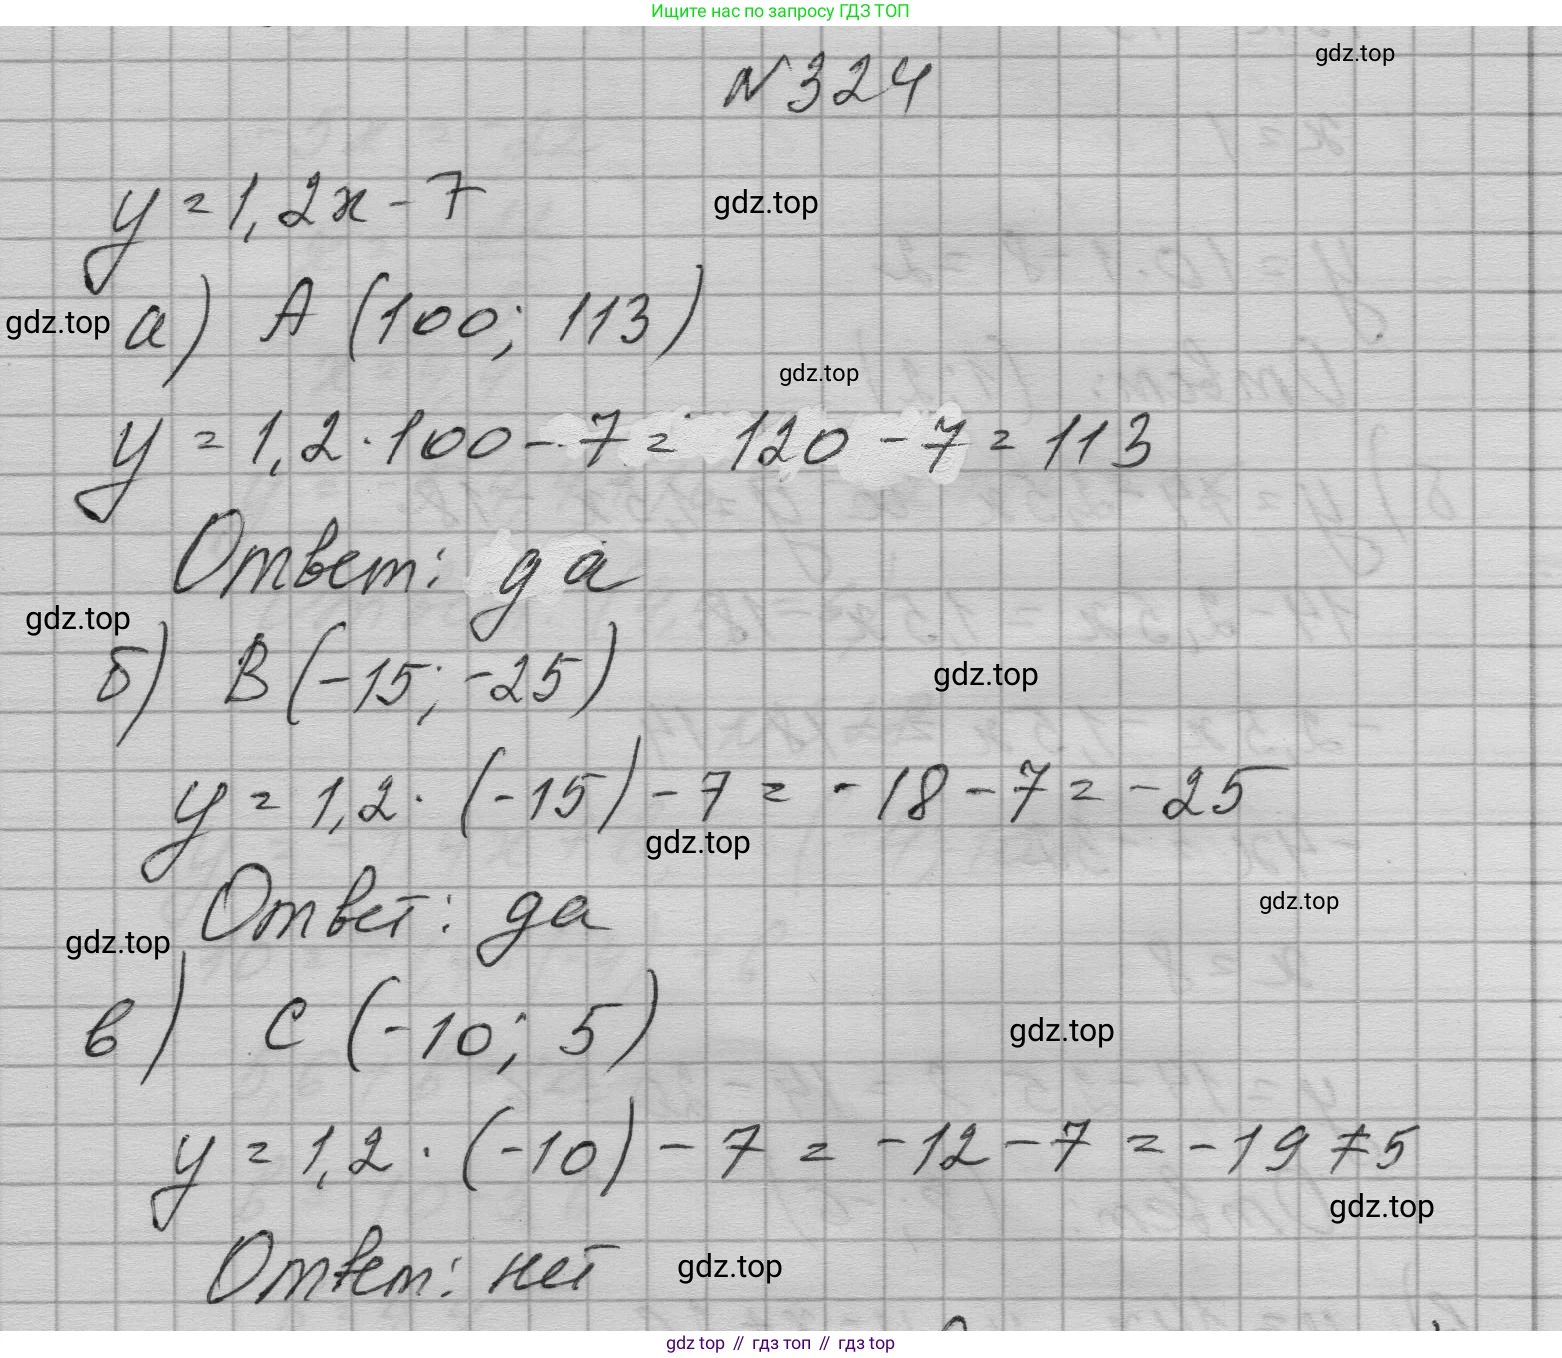 Ищите нас по запросу ГДЗ ТОП
№324
gdz.top
y = 1,2x - 7
gdz.top
gdz.top
а) A (100; 113)
gdz.top
y = 1,2 · 100 - 7 = 120 - 7 = 113
Ответ: да
gdz.top
б) B (-15; -25)
gdz.top
y = 1,2 · (-15) - 7 = -18 - 7 = -25
gdz.top
Ответ: да
gdz.top
gdz.top
в) C (-10; 5)
gdz.top
y = 1,2 · (-10) - 7 = -12 - 7 = -19 ≠ 5
gdz.top
Ответ: нет
gdz.top
gdz top // гдз топ // гдз top